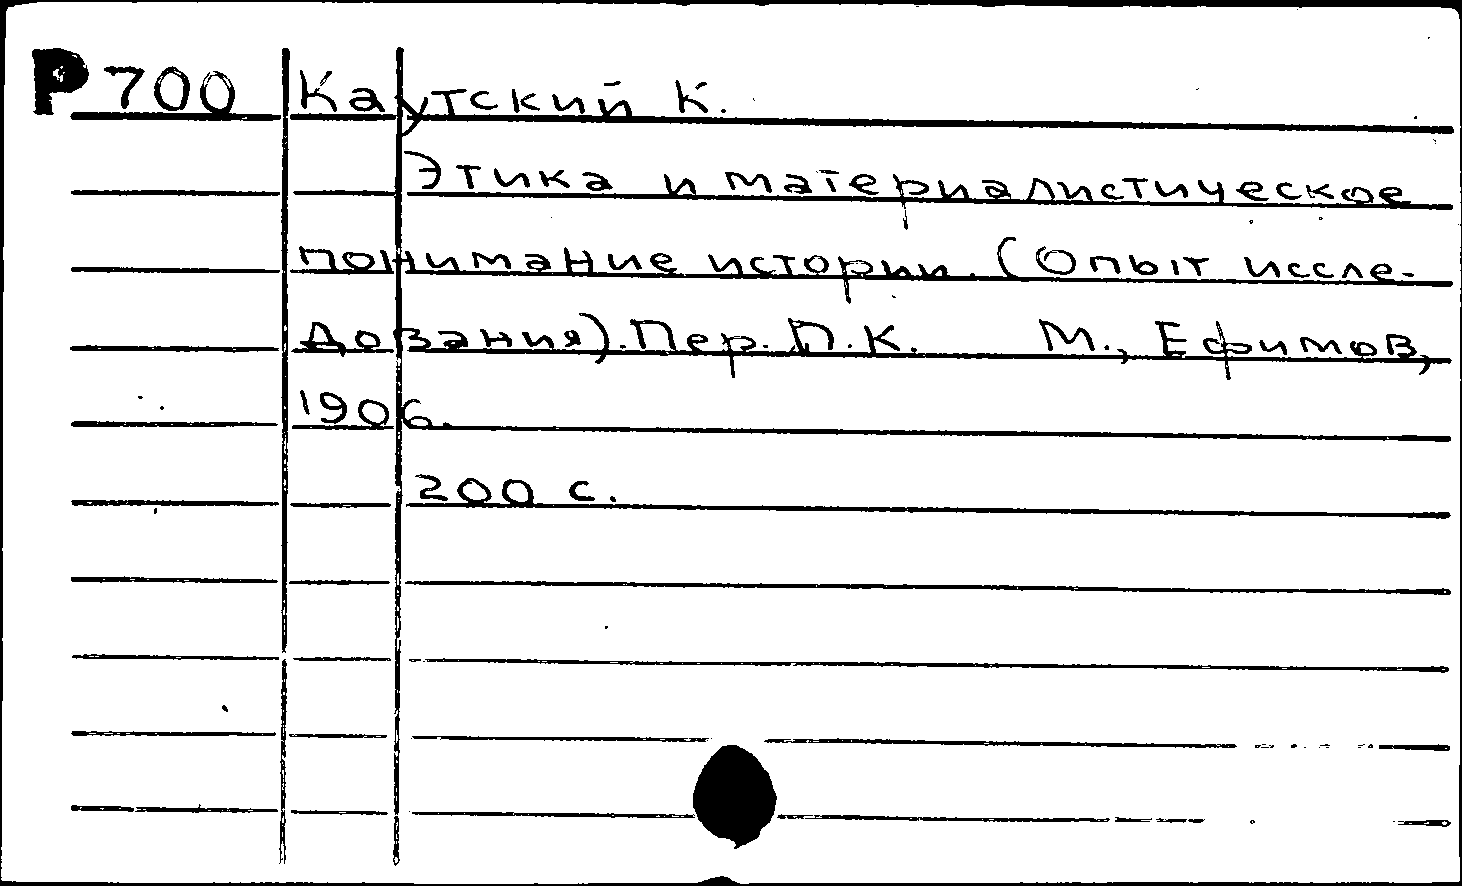 Р 700 Каутский К.
Этика и материалистическое
понимание истории. (Опыт иссле-
дования). Пер. П.К. М., Ефимов,
1906.
200 с.